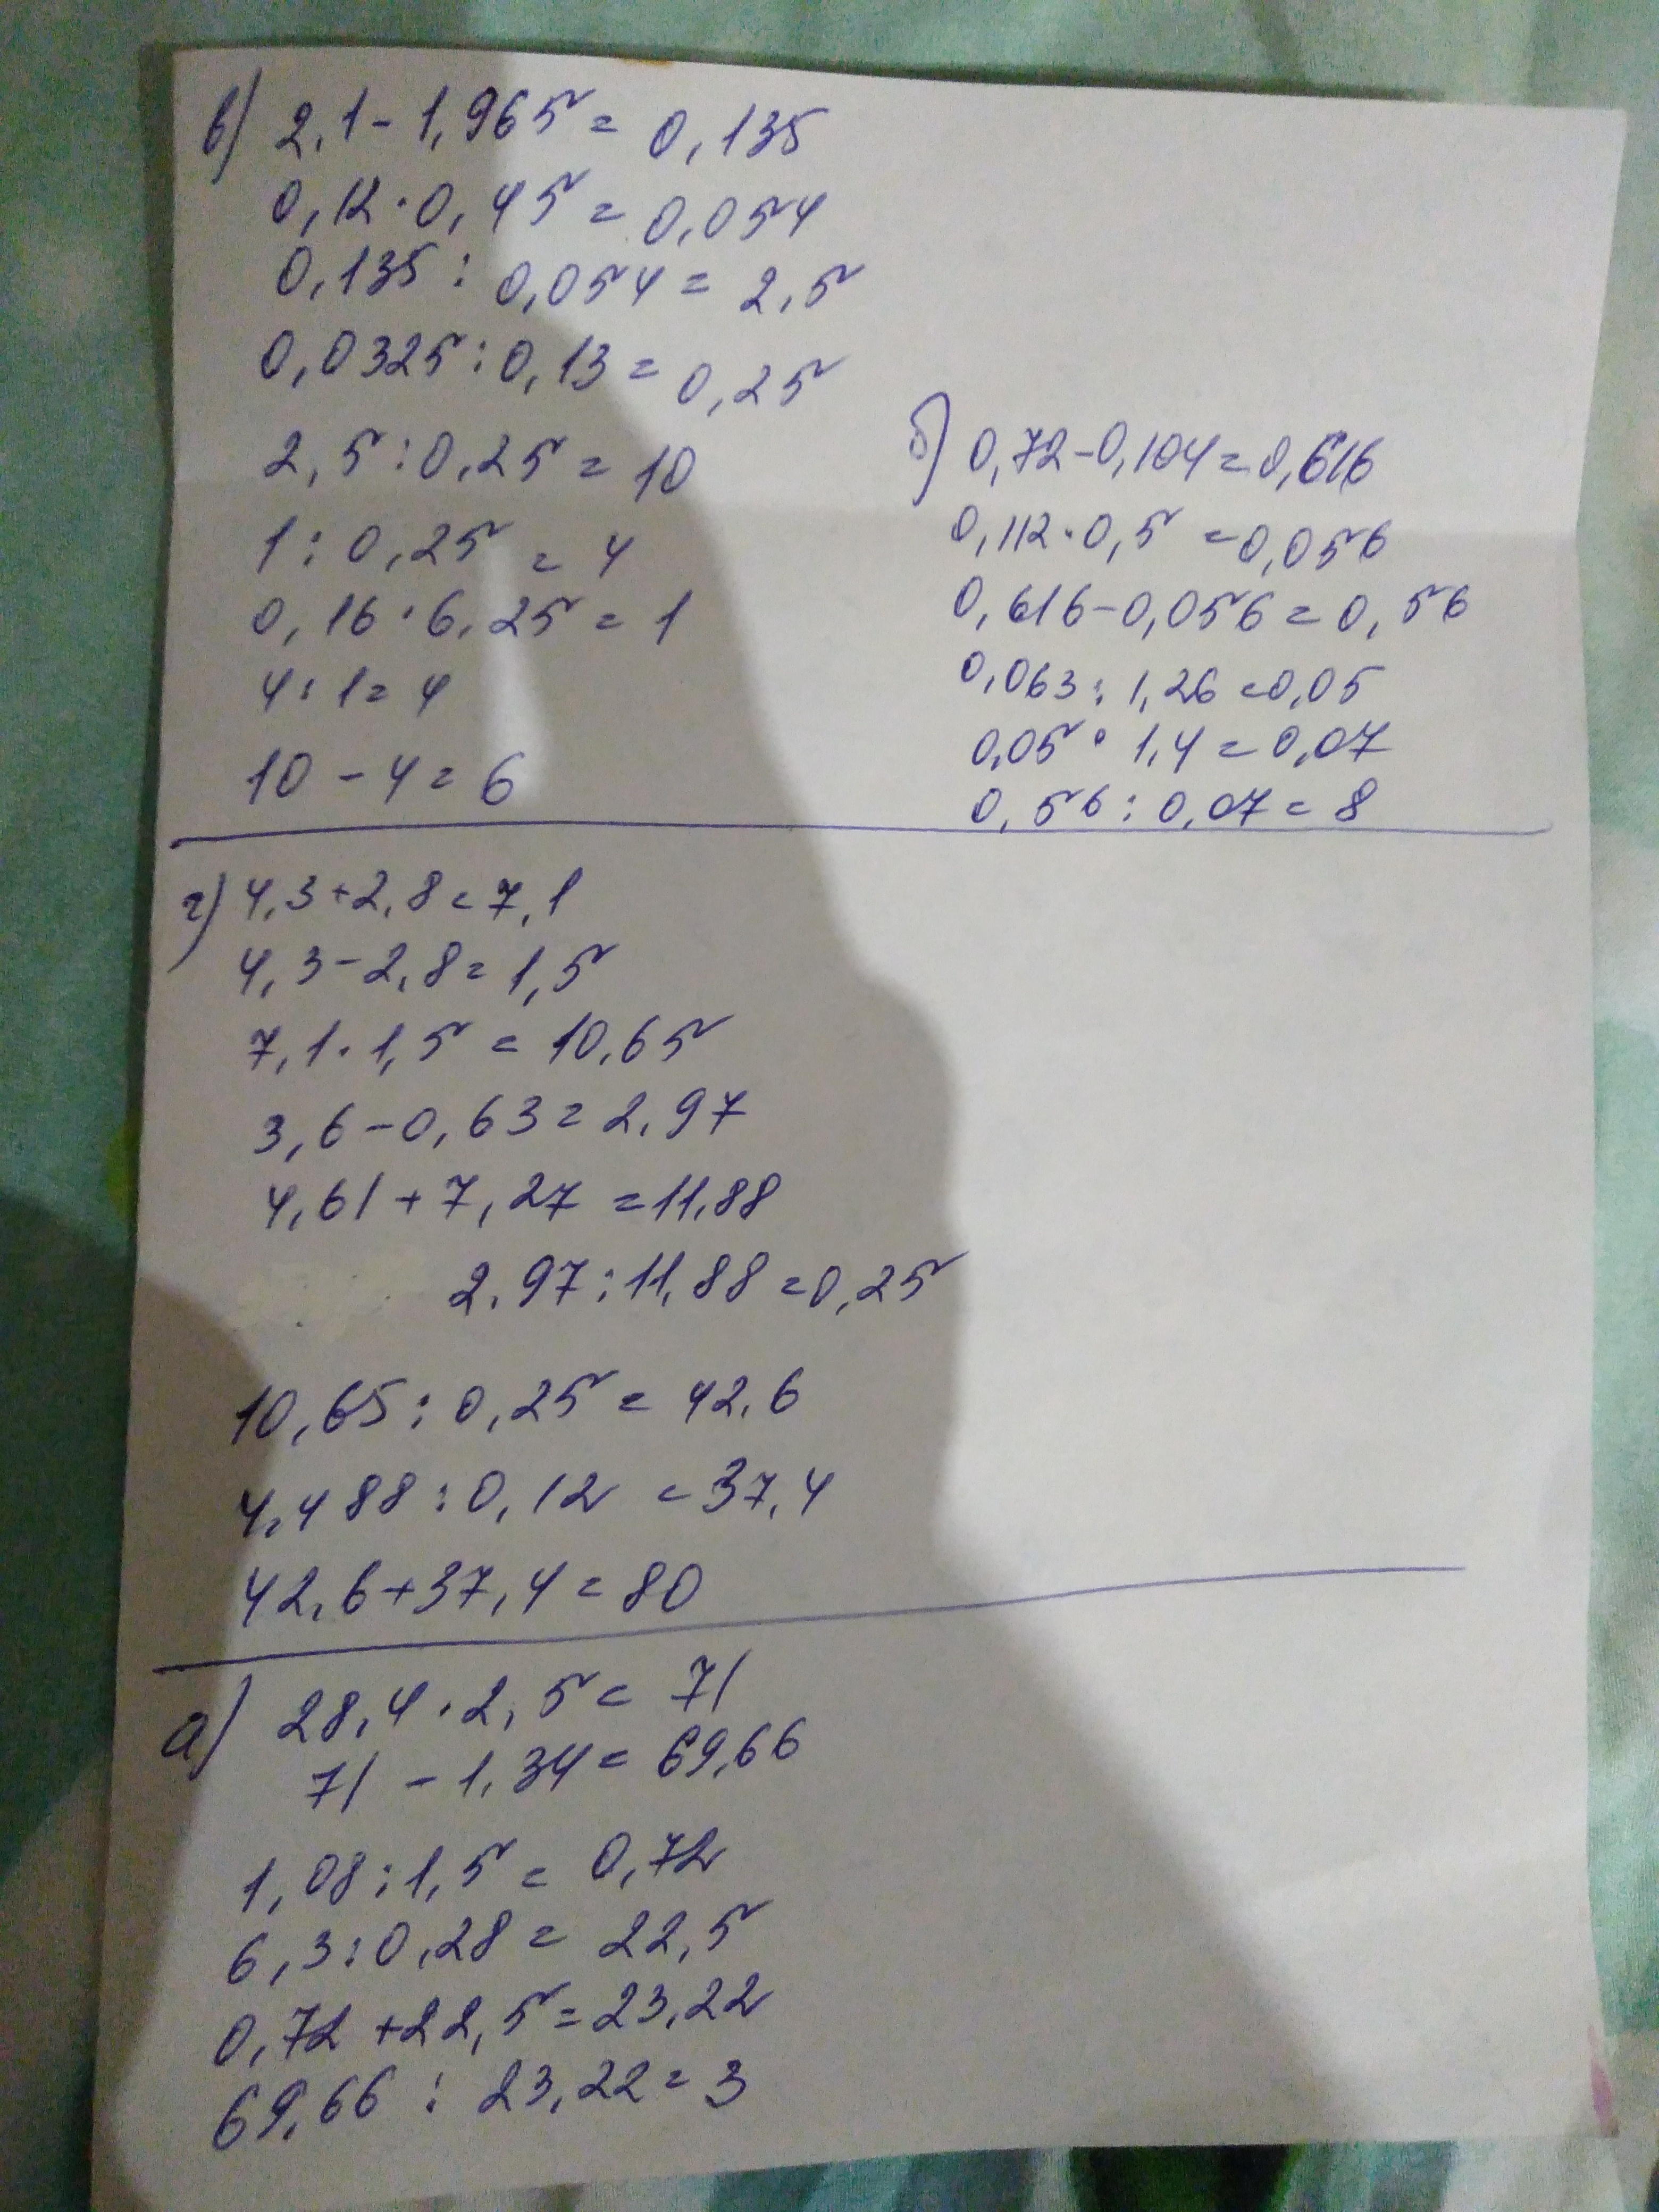 в) 2,1 - 1,965 = 0,135
0,12 · 0,45 = 0,054
0,135 : 0,054 = 2,5
0,0325 : 0,13 = 0,25
2,5 : 0,25 = 10
1 : 0,25 = 4
0,16 · 6,25 = 1
4 : 1 = 4
10 - 4 = 6
б) 0,72 - 0,104 = 0,616
0,112 · 0,5 = 0,056
0,616 - 0,056 = 0,56
0,063 : 1,26 = 0,05
0,05 · 1,4 = 0,07
0,56 : 0,07 = 8
г) 4,3 + 2,8 = 7,1
4,3 - 2,8 = 1,5
7,1 · 1,5 = 10,65
3,6 - 0,63 = 2,97
4,61 + 7,27 = 11,88
2,97 : 11,88 = 0,25
10,65 : 0,25 = 42,6
4,488 : 0,12 = 37,4
42,6 + 37,4 = 80
а) 28,4 · 2,5 = 71
71 - 1,34 = 69,66
1,08 : 1,5 = 0,72
6,3 : 0,28 = 22,5
0,72 + 22,5 = 23,22
69,66 : 23,22 = 3